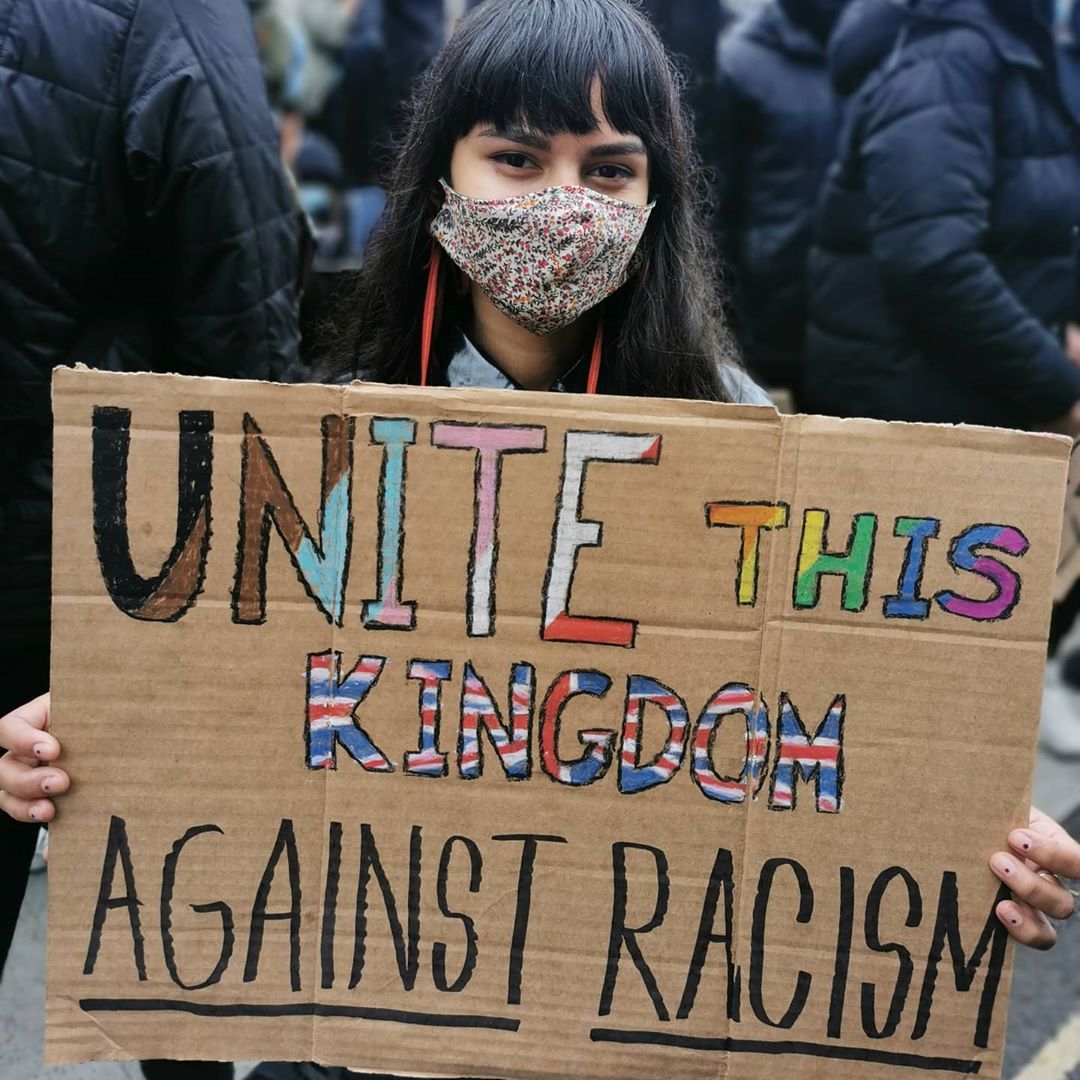 UNITE THIS
KINGDOM
AGAINST RACISM